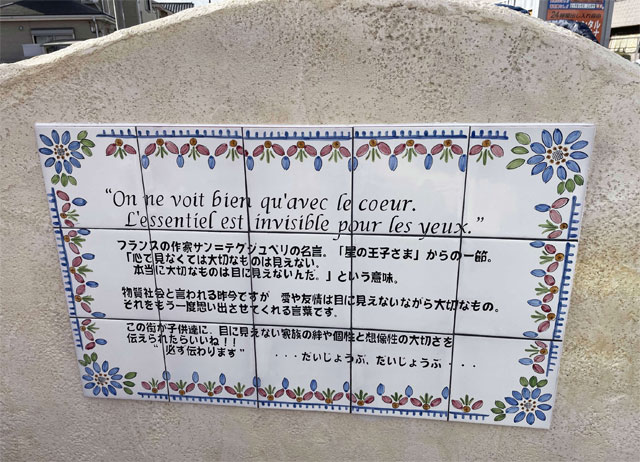 "On ne voit bien qu'avec le coeur.
L'essentiel est invisible pour les yeux."
フランスの作家サン=テグジュペリの名言。「星の王子さま」からの一節。
「心で見なくては大切なものは見えない。
本当に大切なものは目に見えないんだ。」という意味。
物質社会と言われる昨今ですが 愛や友情は目に見えないながら大切なもの。
それをもう一度思い出させてくれる言葉です。
この街が子供達に、目に見えない家族の絆や個性と想像性の大切さを
伝えられたらいいね!!
"必ず伝わります" ・・・だいじょうぶ、だいじょうぶ・・・